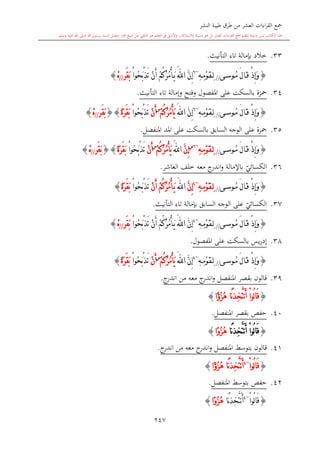 جمع القراءات العشر من طرق طيبة النشر
٣٣. خلاد بإمالة تاء التأنيث.
﴿ وَإِذْ قَالَ مُوسى لِقَوْمِهِ إِنَّ اللهَ يَأْمُرُكُمْ أَنْ تَذْبَحُوا بَقَرَةً ﴾
٣٤. حمزة بالسكت على المفصول وفتح وإمالة تاء التأنيث.
﴿ وَإِذْ قَالَ مُوسى لِقَوْمِهِ إِنَّ اللهَ يَأْمُرُكُمْ أَنْ تَذْبَحُوا بَقَرَةً ﴾ ﴿ بَقَرَةً ﴾
٣٥. حمزة على الوجه السابق بالسكت على المد المنفصل.
﴿ وَإِذْ قَالَ مُوسى لِقَوْمِهِ إِنَّ اللهَ يَأْمُرُكُمْ أَنْ تَذْبَحُوا بَقَرَةً ﴾ ﴿ بَقَرَةً ﴾
٣٦. الكسائيّ بالإمالة واندرج معه خلف العاشر.
﴿ وَإِذْ قَالَ مُوسى لِقَوْمِهِ إِنَّ اللهَ يَأْمُرُكُمْ أَنْ تَذْبَحُوا بَقَرَةً ﴾
٣٧. الكسائيّ على الوجه السابق بإمالة تاء التأنيث.
﴿ وَإِذْ قَالَ مُوسى لِقَوْمِهِ إِنَّ اللهَ يَأْمُرُكُمْ أَنْ تَذْبَحُوا بَقَرَةً ﴾
٣٨. إدريس بالسكت على المفصول.
﴿ وَإِذْ قَالَ مُوسى لِقَوْمِهِ إِنَّ اللهَ يَأْمُرُكُمْ أَنْ تَذْبَحُوا بَقَرَةً ﴾
٣٩. قالون بقصر المنفصل واندرج معه من اندرج.
﴿ قَالُوا أَتَتَّخِذُنَا هُزُؤًا ﴾
٤٠. حفص بقصر المنفصل.
﴿ قَالُوا أَتَتَّخِذُنَا هُزُوًا ﴾
٤١. قالون بتوسط المنفصل واندرج معه من اندرج.
﴿ قَالُوا أَتَتَّخِذُنَا هُزُؤًا ﴾
٤٢. حفص بتوسط المنفصل.
﴿ قَالُوا أَتَتَّخِذُنَا هُزُوًا ﴾
٢٤٧